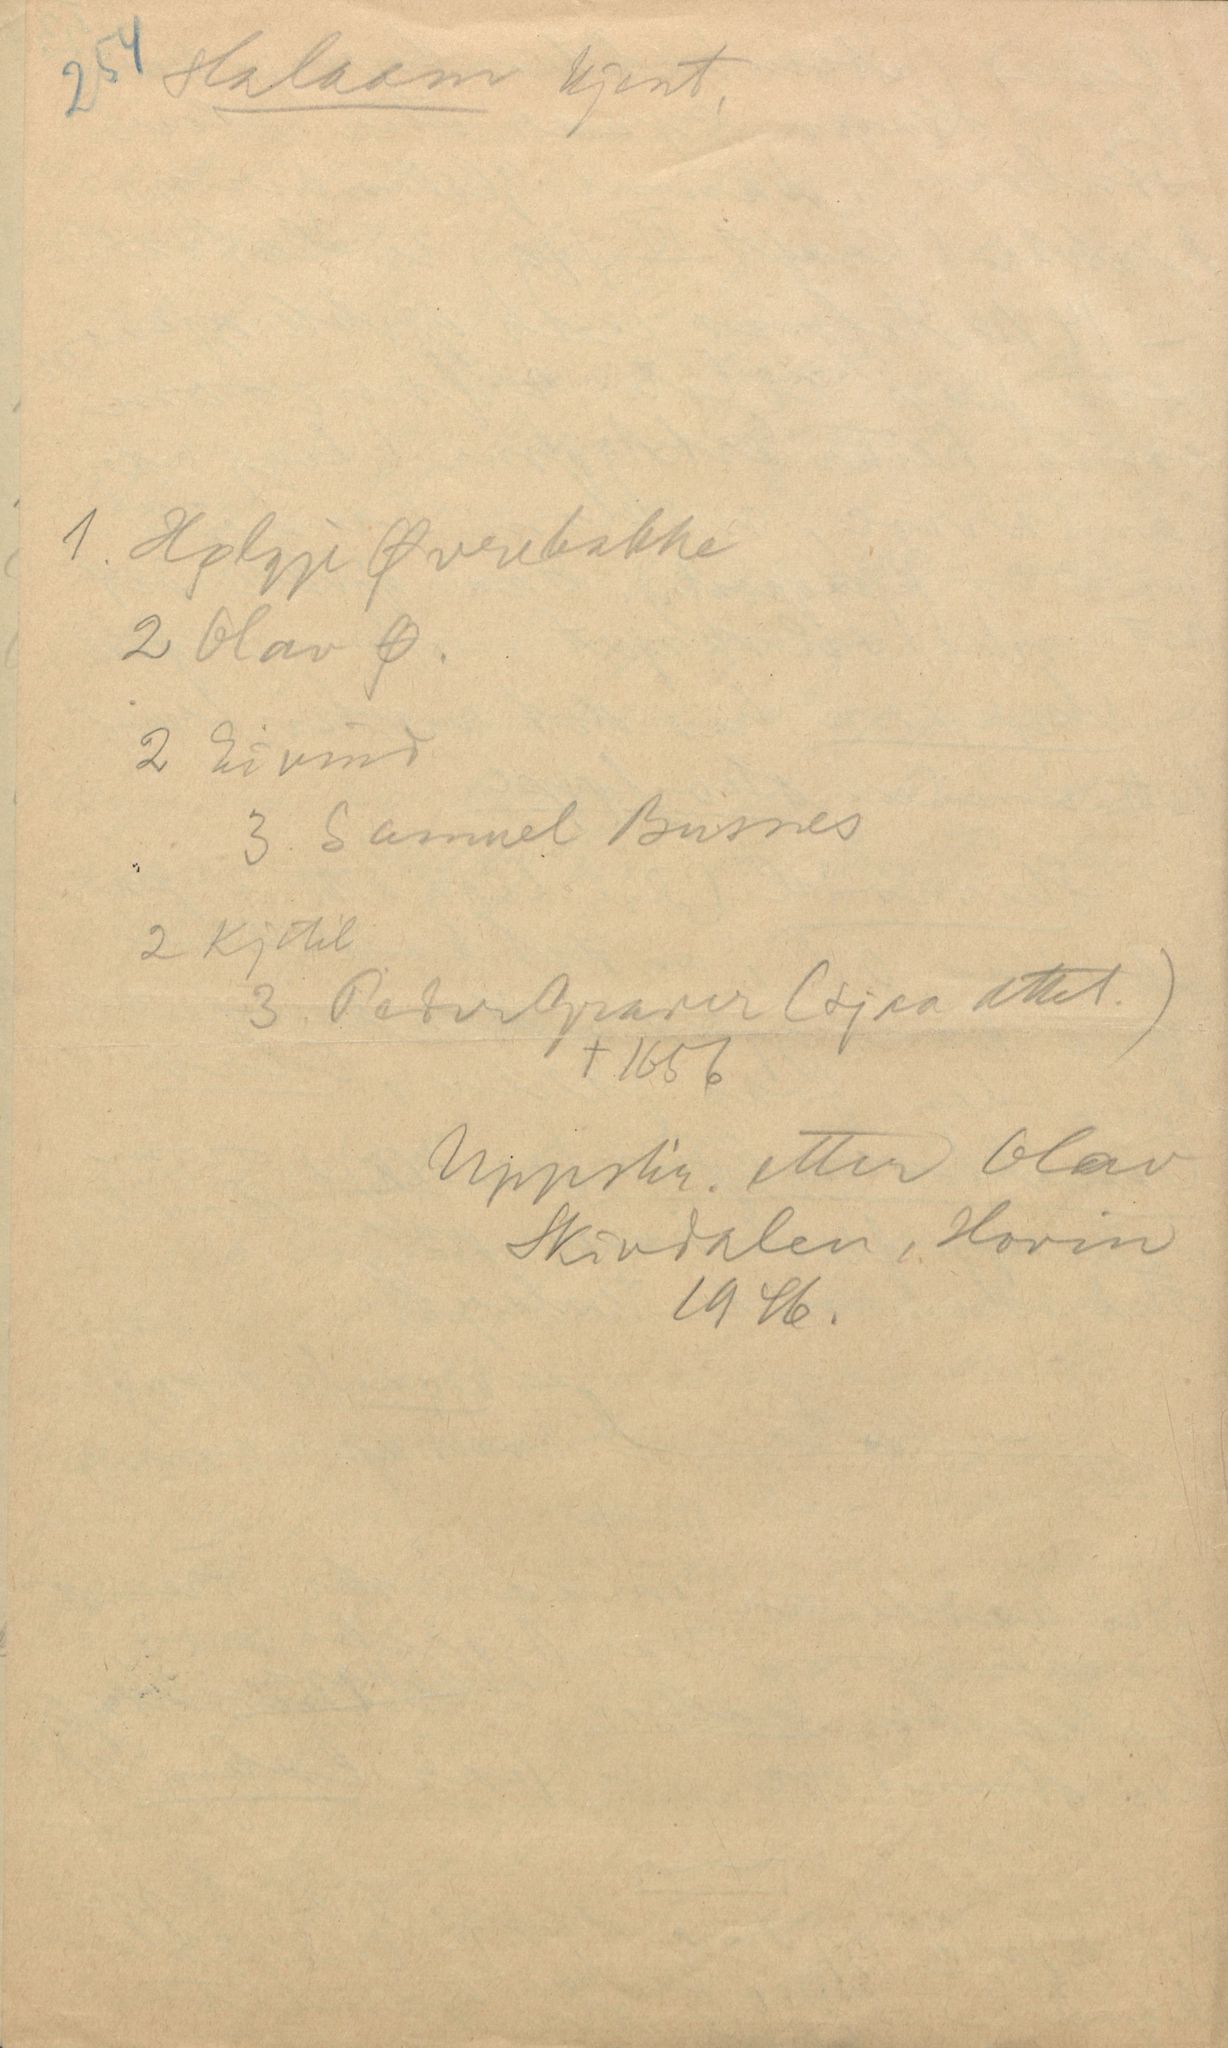 254 Halaam Ujent,
1. Hølgje Øverebakke
2 Olav Ø.
2 Eivind
3 Samuel Busnes
2 Kjetil
3. Peder Graver (sjaa attet.)
† 1656
Uppskr. etter Olav
Skirdalen, Hovin
1946.